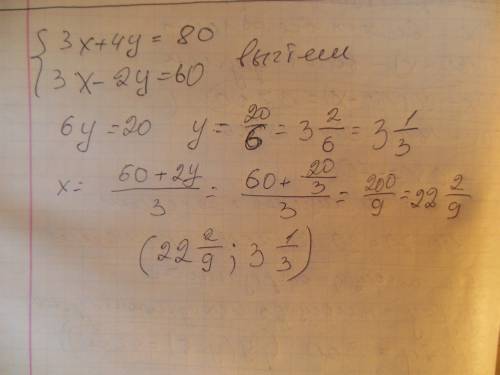 { 3x+4y = 80
{ 3x-2y=60 вычтем
6y=20 y = 20/6 = 3 2/6 = 3 1/3
x = (60+2y)/3 = (60+ 20/3)/3 = 200/9 = 22 2/9
(22 2/9 ; 3 1/3)